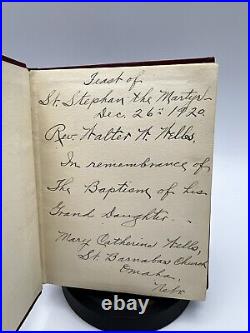 Feast of
St. Stephan the Martyr
Dec. 26th 1920.
Rev. Walter W. Wells
In remembrance of
The Baptism of his
Grand Daughter.
Mary Catherine Wells,
St Barnabas Church
Omaha.
Nebr